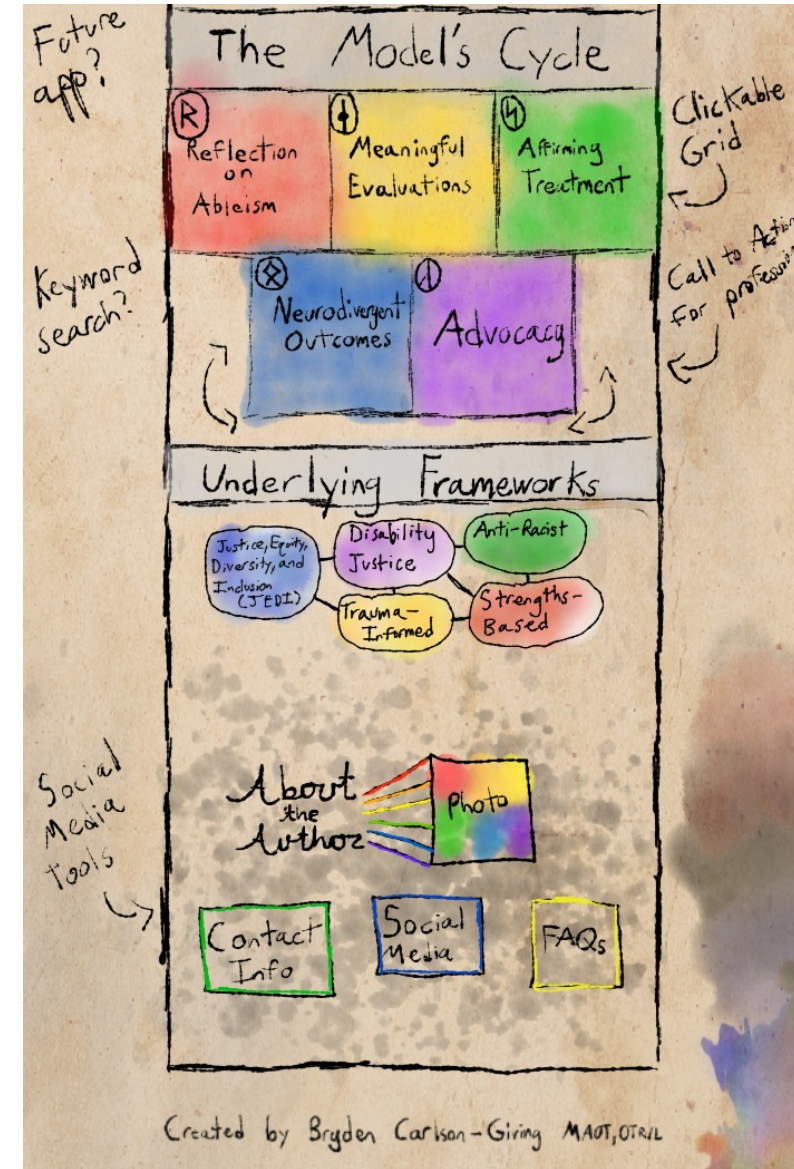 Future
app?
The Model's Cycle
Reflection
on
Ableism
Meaningful
Evaluations
Affirming
Treatment
Clickable
Grid
Keyword
search?
Neurodivergent
Outcomes
Advocacy
Call to Action
for
Underlying Frameworks
Justice, Equity,
Diversity, and
Inclusion
(JEDI)
Disability
Justice
Anti-Racist
Trauma-
Informed
Strengths-
Based
Social
Media
Tools
About
the
Author
Photo
Contact
Info
Social
Media
FAQs
Created by Bryden Carlson-Giring MAOT, OTR/L